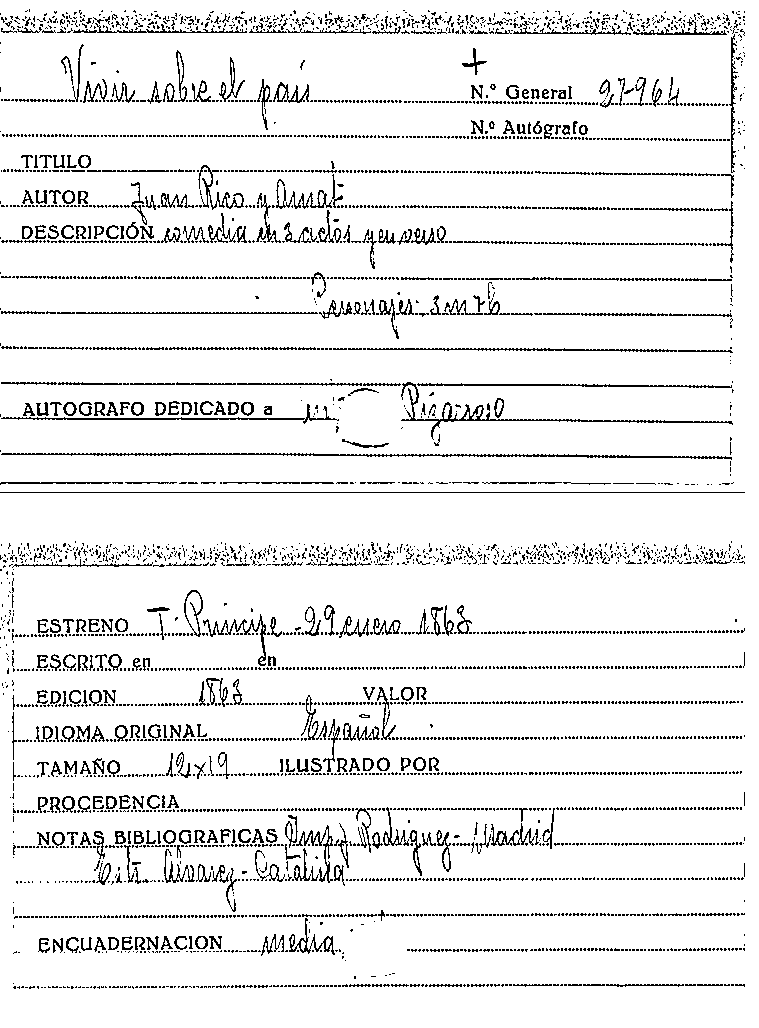 Vivir sobre el país
+
N.º General 27-964
N.º Autógrafo
TITULO
AUTOR Juan Rico y Amat
DESCRIPCIÓN comedia en 3 actos y en verso
Personajes: 3 m 7 h
AUTOGRAFO DEDICADO a Pizarroso
ESTRENO T. Principe - 29 enero 1863
ESCRITO en en
EDICION 1863 VALOR
IDIOMA ORIGINAL Español
TAMAÑO 12x19 ILUSTRADO POR
PROCEDENCIA
NOTAS BIBLIOGRAFICAS Imp. J. Rodriguez - Madrid
Estr. Alvarez - Catalina
ENCUADERNACION media